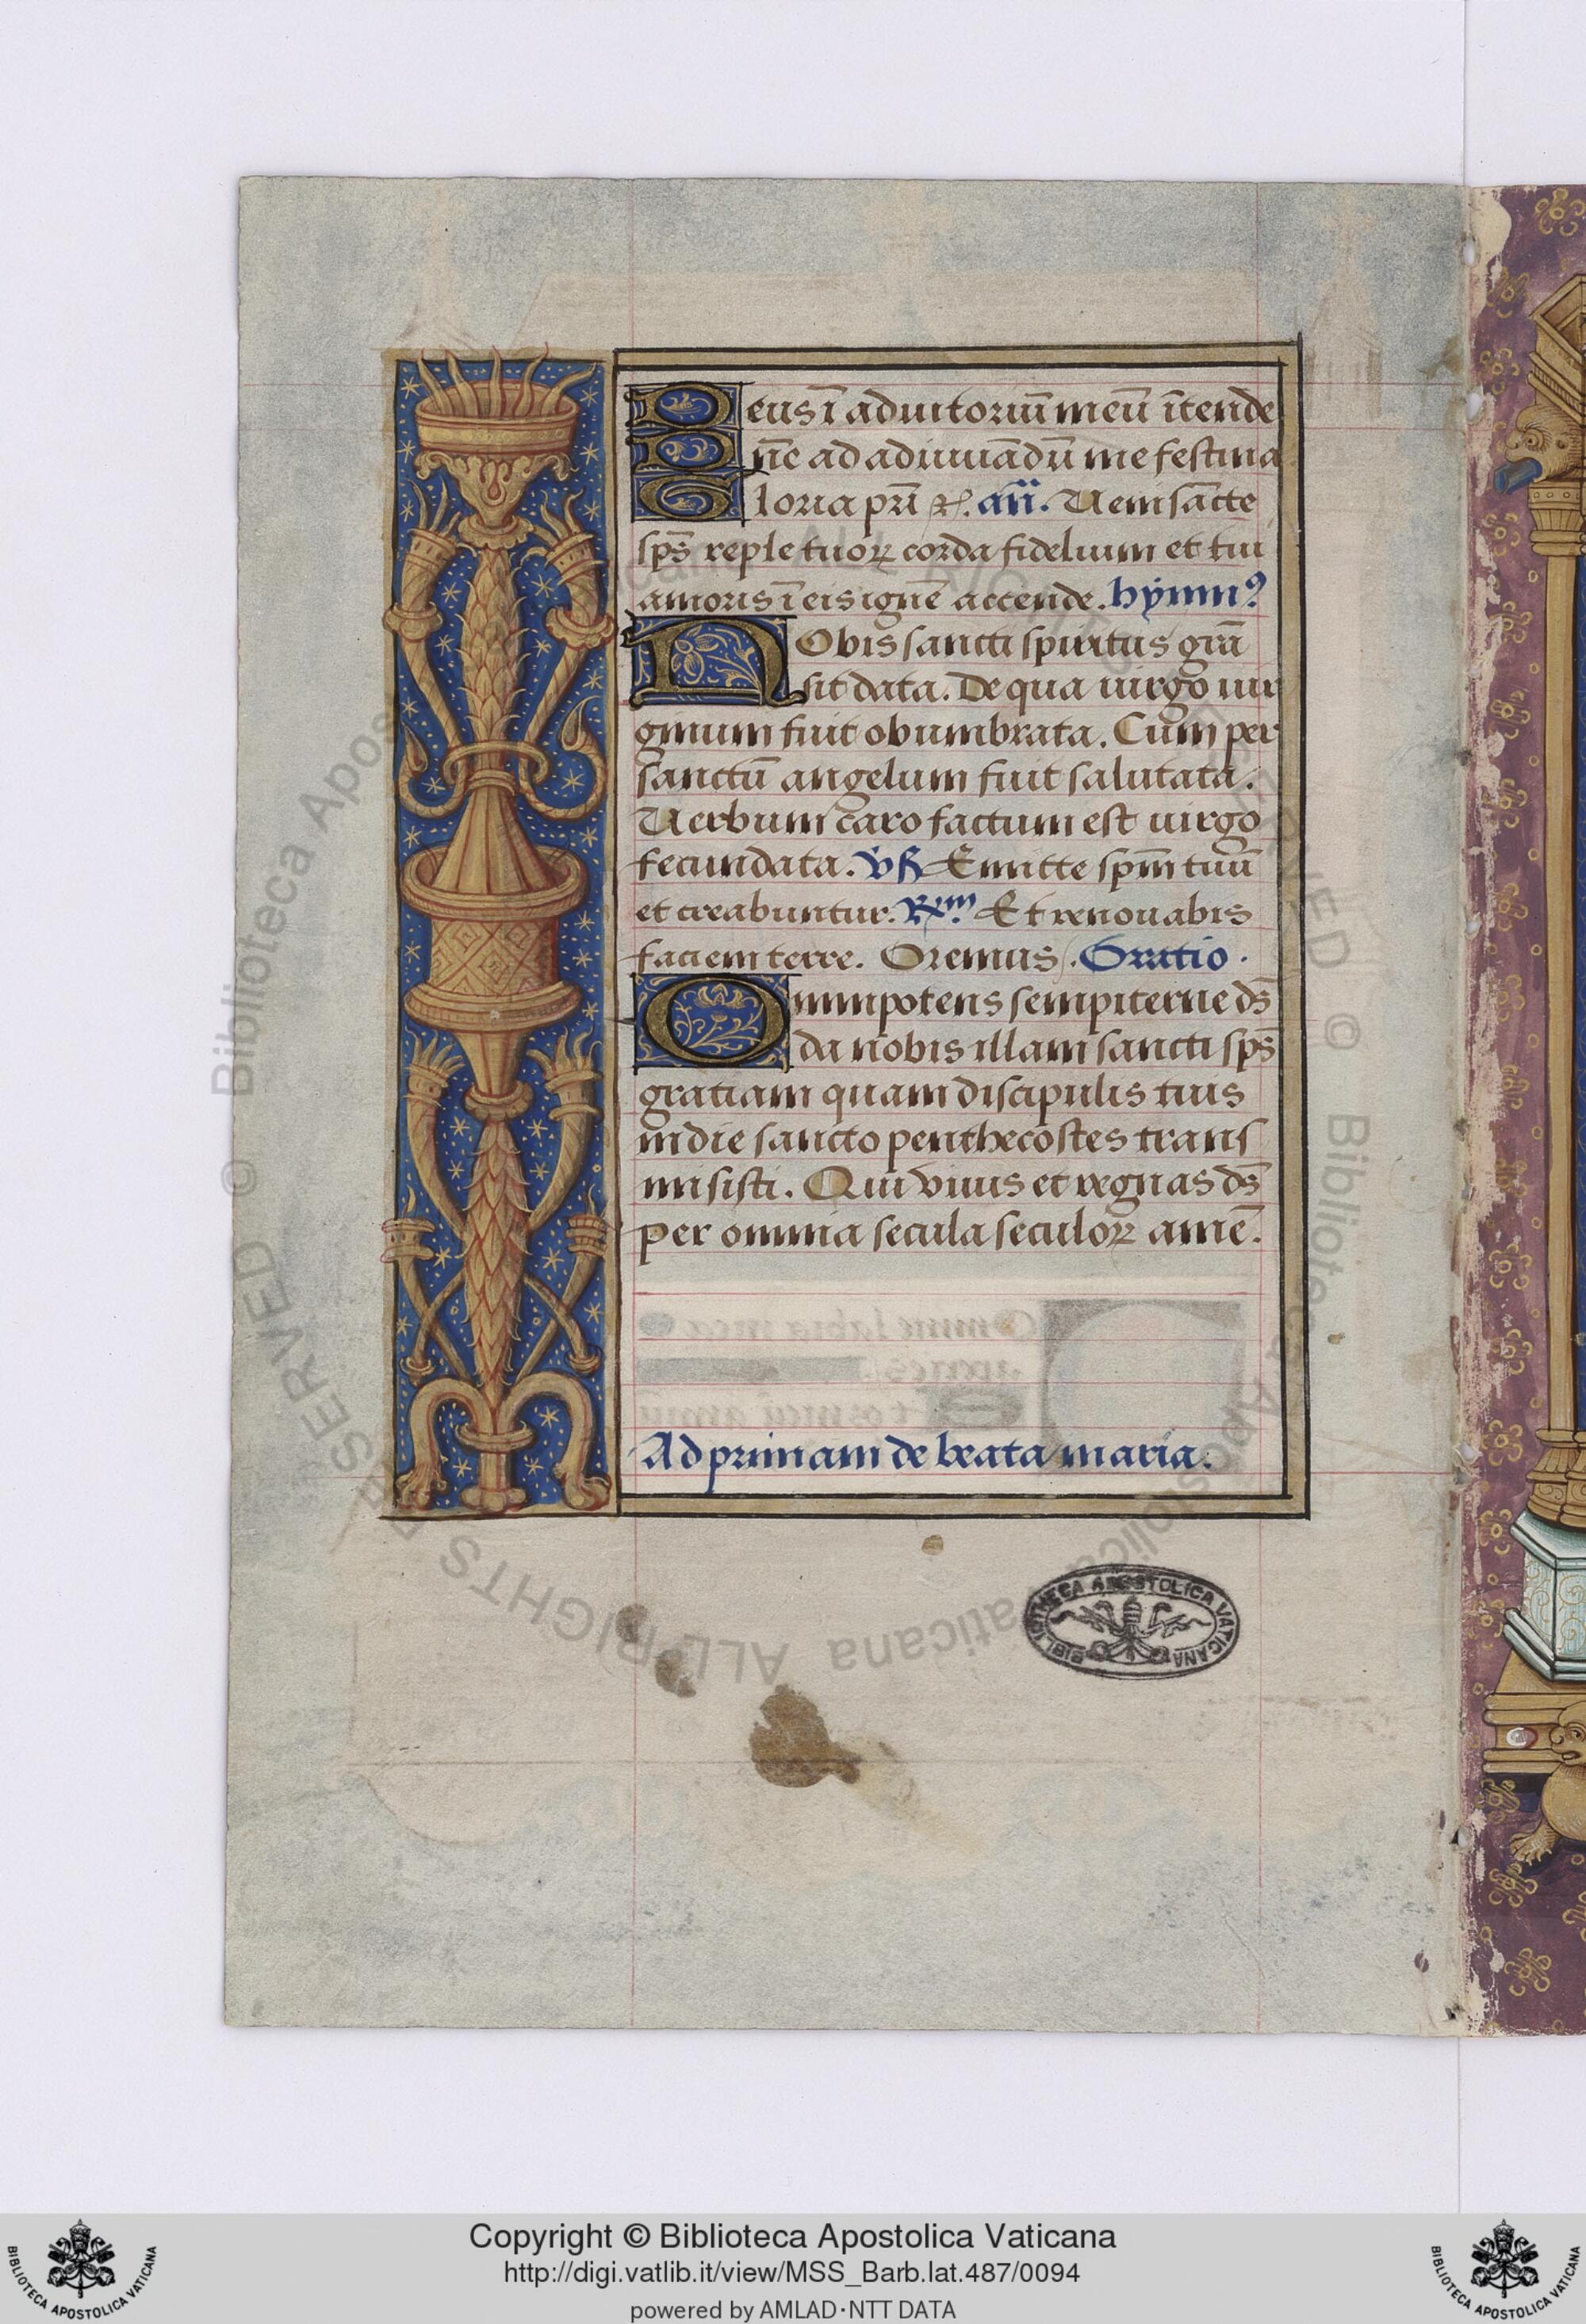 Deus ī adiutoriū meū ītende
Dñe ad adiuuādū me festina
Gloria pr̄i ⁊c. añ. Ueni sācte
sp̄s reple tuoꝝ corda fidelium et tui
amoris ī eis ignē accende. hȳmnꝰ
Nobis sancti spiritus grā
sit data. De qua uirgo uir
ginum fuit obumbrata. Cum per
sanctū angelum fuit salutata.
Uerbum caro factum est uirgo
fecundata. v̄s Emitte sp̄m tuū
et creabuntur. Rx̄m Et renouabis
faciem terre. Oremus. Oratio.
Omnipotens sempiterne ds̄
da nobis illam sancti sp̄s
gratiam quam discipulis tuis
in die sancto penthecostes trans
misisti. Qui viuis et regnas ds̄
per omnia secula seculoꝝ amē.
Ad primam de beata maria.
BIBLIOTHECA APOSTOLICA VATICANA
© Biblioteca Apostolica Vaticana ALL RIGHTS RESERVED
Copyright © Biblioteca Apostolica Vaticana
http://digi.vatlib.it/view/MSS_Barb.lat.487/0094
powered by AMLAD·NTT DATA
BIBLIOTECA APOSTOLICA VATICANA
BIBLIOTECA APOSTOLICA VATICANA